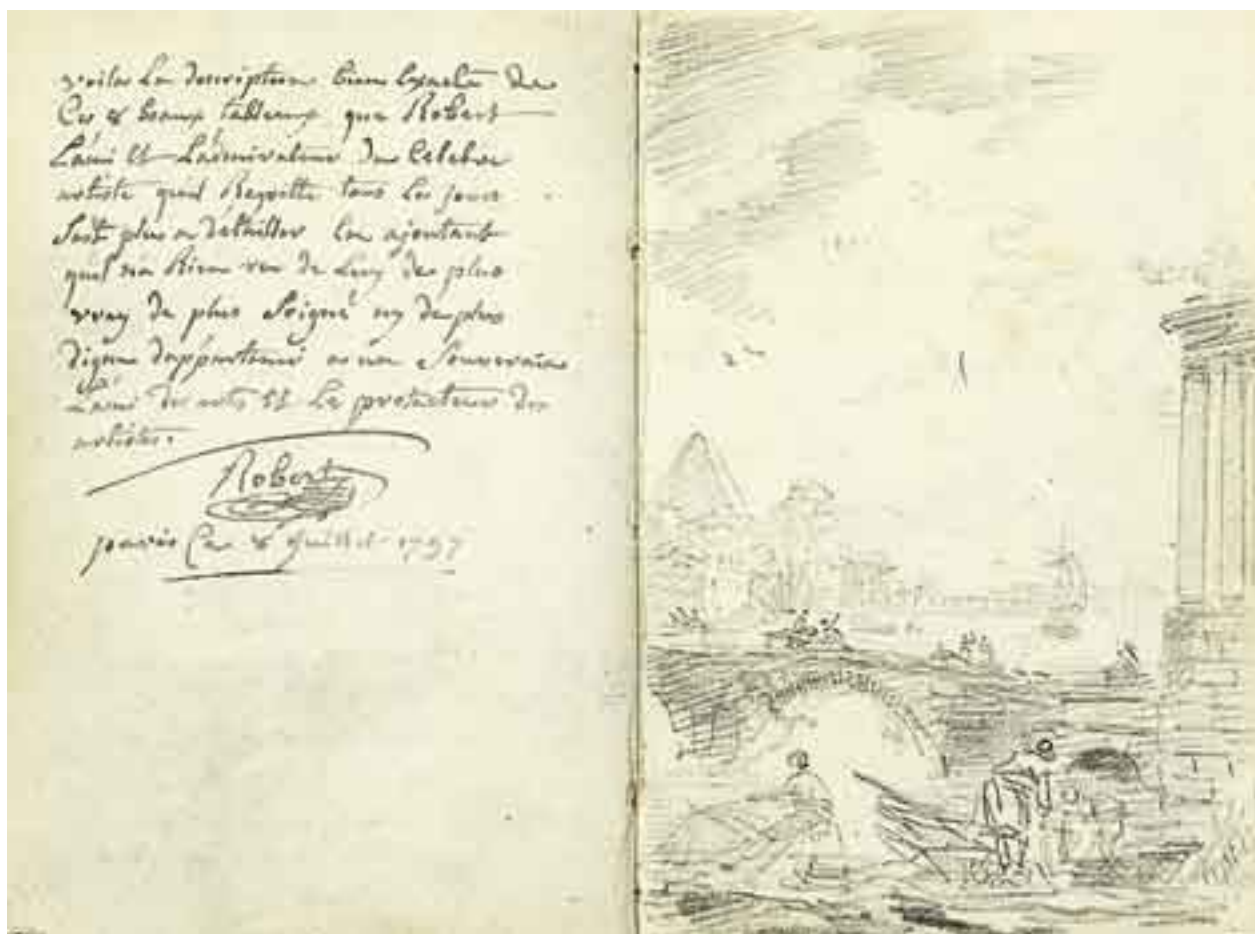 voila La description bien Exacte de
Ces 8 beaux tableaux que Robert
L'ami Et L'admirateur du Celebre
artiste quil Regrette tous Les jours
sest plu a detailler En ajoutant
quil n'a Rien vu de Luy de plus
vray de plus Soigné ny de plus
digne d'appartenir a un Souverain
L'ami des arts Et Le protecteur des
artistes.
Robert
paris Ce 8 Juillet 1797